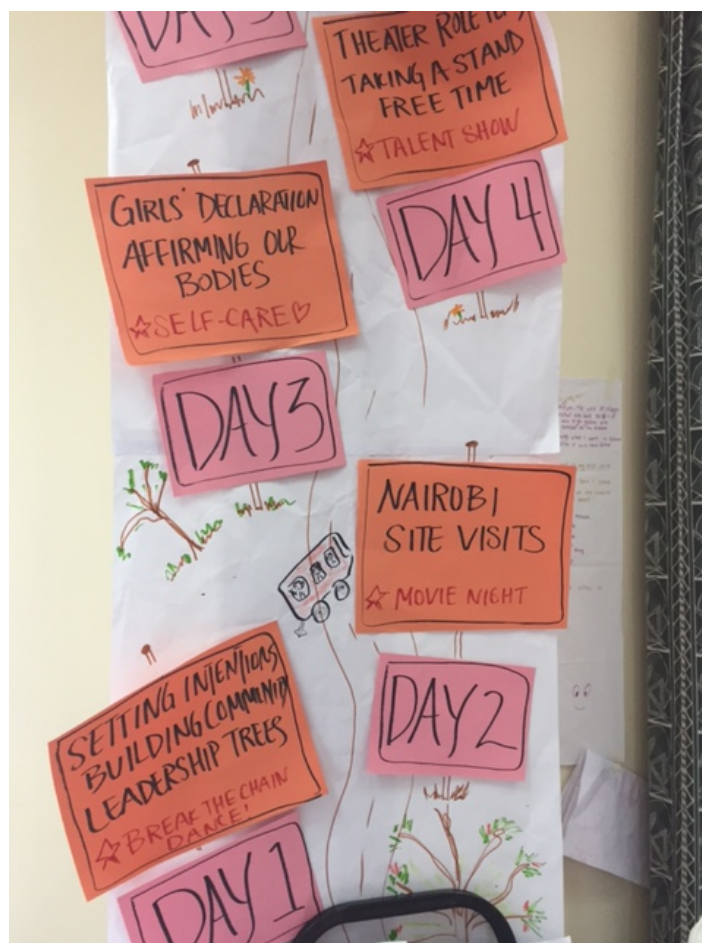 DAY 5
THEATER ROLE
TAKING A STAND
FREE TIME
☆ TALENT SHOW
DAY 4
GIRLS' DECLARATION
AFFIRMING OUR
BODIES
☆ SELF-CARE ♡
DAY 3
NAIROBI
SITE VISITS
☆ MOVIE NIGHT
DAY 2
SETTING INTENTIONS
BUILDING COMMUNITY
LEADERSHIP TREES
☆ BREAK THE CHAIN
DANCE!
DAY 1